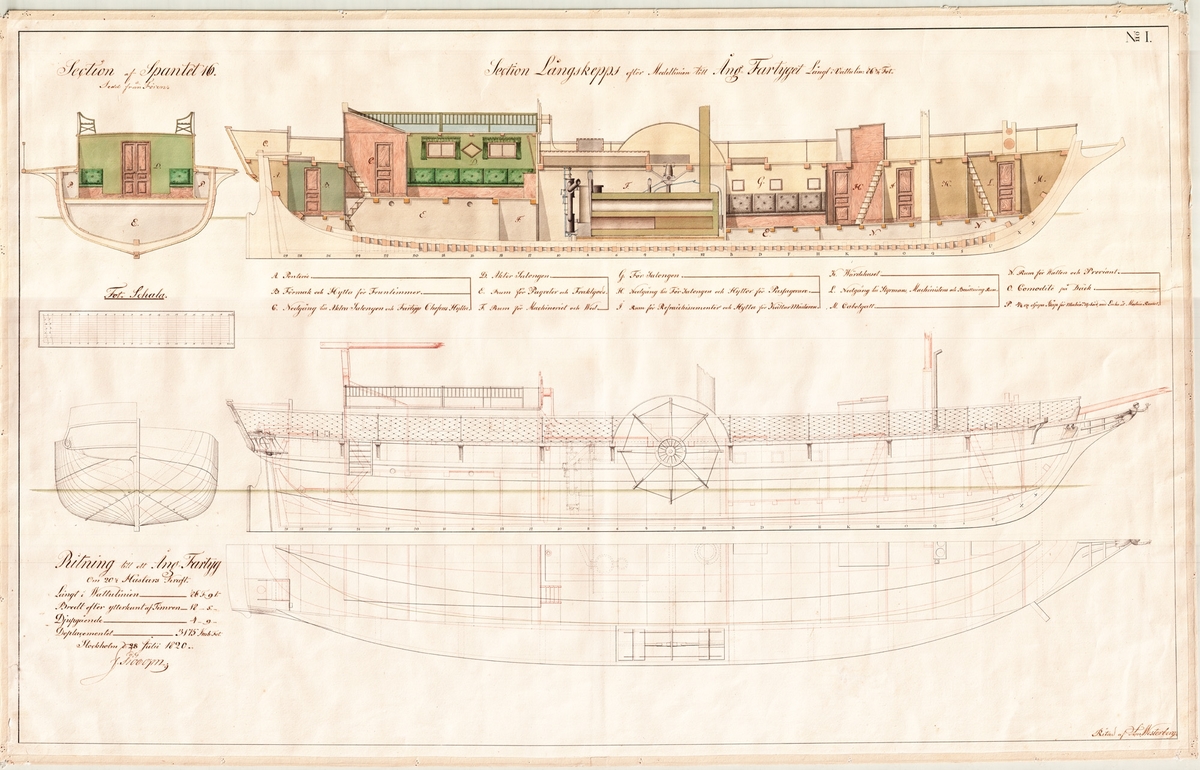 No I.
Section af Spantet 16.
Sedd från Förenz
Section Långskepps efter Medellinian till Ång Fartyget Längd i Vattulin: 76¾ Fot.
A Penteri
B Förmak och Hyllor för Fruntimmer
C Nedgång till Akter Salongen och Fartygs Chefens Hytte
D Akter Salongen
E Rum för Pagerier och Fraktgods
F Rum för Machineriet och Ved
G För Salongen
H Nedgång till För Salongen och Hyllor för Passagerare
I Rum för Refraichissementer och Hyllor för
K Wärdshuset
L Nedgång till Styrmans, Machinistens och Besättnings Rum
M Cabelgatt
N Rum för Vatten och Proviant
O Comoditè på Däck
P
Fot Schala.
Ritning till ett Ång Fartyg
Om 20 Hästars Kraft
Längd i Wattulinian
Bredd efter ytterkant af Timren
Djupgående 4 _ 9 _
Deplacementet 3175
Stockholm d 28 Julii 1820
Ritad af Westerberg